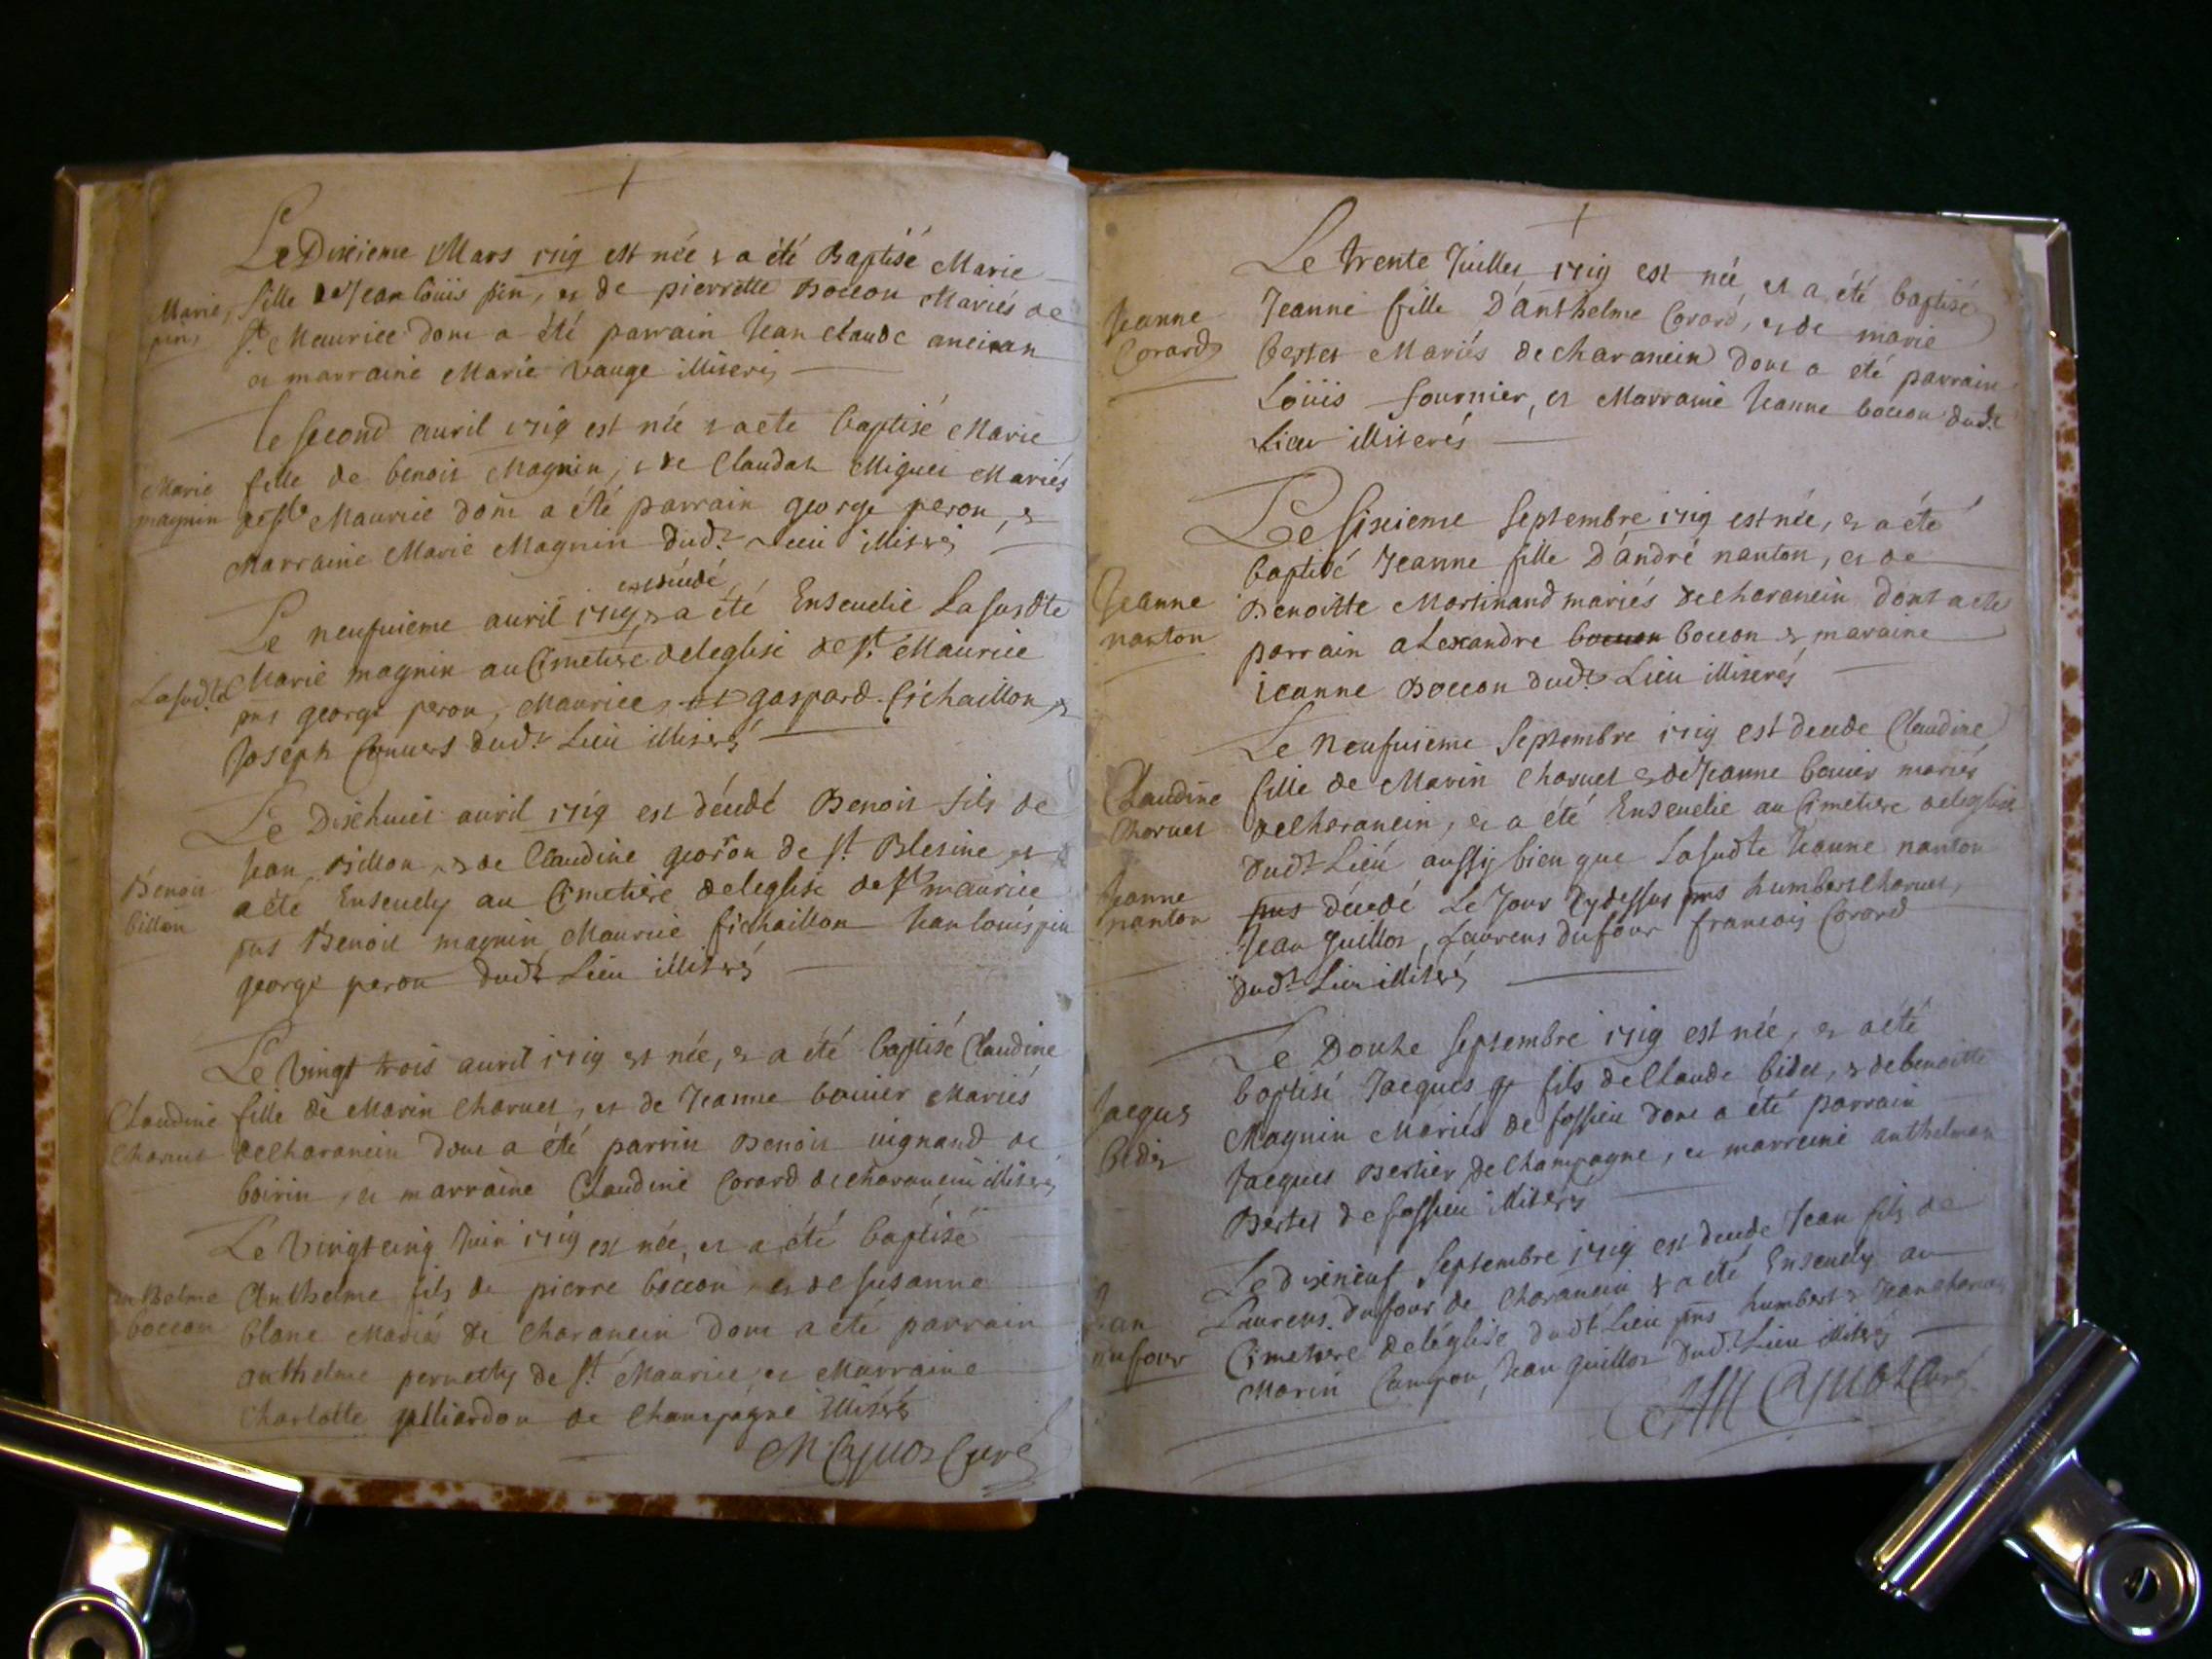 Le Dixieme Mars 1719 est née & a été Baptisé Marie
Marie pin
fille de Jean louis pin, et de pierrette Boccon Mariés de
St Maurice dont a été parrain Jean Claude ancian
et marraine Marie vauge illiserés
le second avril 1719 est née & a ete baptisé Marie
Marie magnin
fille de benoit Magnin, & de Claudat Miguet Mariés
de St Maurice dont a été parrain george peron, &
Marraine Marie Magnin dudt Lieu illiserés
est décédé
Le neufuieme auril 1719 & a été Enseuelie La susdte
La sudte
Marie magnin au Cimetiere de leglise de St Maurice
pnts george peron, Maurice, gaspard fichaillon, &
Joseph dudt Lieu illiserés
Le Dixehuict auril 1719 est décédé Benoit fils de
Benoit billon
Jean Billon, & de Claudine georon de St Blesine, et
a été Enseuely au Cimetiere de leglise de St maurice
pnts Benoit magnin Maurice fichaillon Jean louis pin
george peron dudt Lieu illiserés
Le Vingt trois auril 1719 est née, & a été baptisé Claudine
Claudine Charuet
fille de Marin Charuet, et de Jeanne bouuier Mariés
de Charancin dont a été parrin Benoit uignand de
boirin, et marraine Claudine Corard de charancin illiserés
Le Vingt cinq Juin 1719 est née, et a été baptisé
anthelme boccon
Anthelme fils de pierre boccon, et de susanne
blanc Mariés de Charancin dont a été parrain
anthelme pernetty de St Maurice, et Marraine
Charlotte galliardon de Champagne illiserés
Curé
Le trente Juillet 1719 est née et a été baptisé
Jeanne Corard
Jeanne fille D'anthelme Corard, et de marie
bertet Mariés de charancin dont a été parrain
Louis fournier, et Marraine Jeanne boccon dudt
Lieu illiserés
Le sixieme septembre 1719 est née, & a été
baptisé Jeanne fille D'andré nanton, et de
Jeanne nanton
Benoitte Martinand mariés de charancin dont a ete
parrain aLexandre boccon boccon & maraine
jeanne Boccon dudt Lieu illiserés
Le Neufuieme septembre 1719 est decede Claudine
Claudine Charuet
fille de Marin Charuet & de Jeanne bouier mariés
de Charancin, et a été Enseuelie au Cimetiere de leglise
dudt Lieu aussy bien que La sudte Jeanne nanton
Jeanne nanton
pnts décédé Le Jour Cy dessus pnts humbert Charuet,
Jean guillot, Laurens dufour francois Corard
dudt Lieu illiserés
Le Douze septembre 1719 est née, & a été
Jacques bidet
baptisé Jacques fils de Claude bidet, & de benoitte
Magnin Mariés de fossieu dont a été parrain
Jacques Bertier de Champagne, et marreine anthelmaz
Bertet de fossieu illiserés
Le dixeneuf septembre 1719 est decede Jean fils de
Jean dufour
Laurens dufour de Charancin & a été Enseuely au
Cimetiere de léglise dudt Lieu pnts humbert & Jean charuet
Marin Campon, Jean guillot dudt Lieu illiserés
Curé